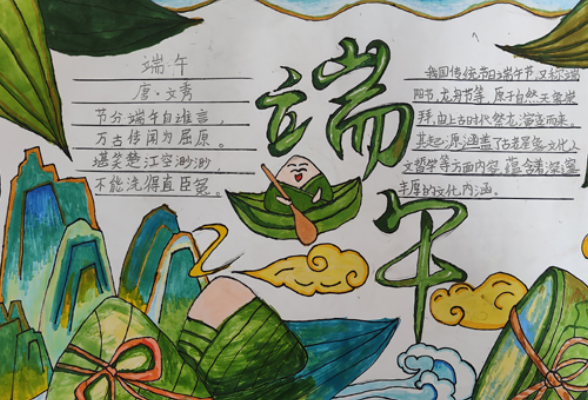 端午
端·午
唐·文秀
节分端午自谁言，
万古传闻为屈原。
堪笑楚江空渺渺，
不能洗得直臣冤。
我国传统节日端午节，又称端
阳节，龙舟节等，原于自然天象崇
拜，由上古时代祭龙演变而来。
其起源涵盖了古老星象文化，人
文哲学等方面内容，蕴含着深邃
丰厚的文化内涵。